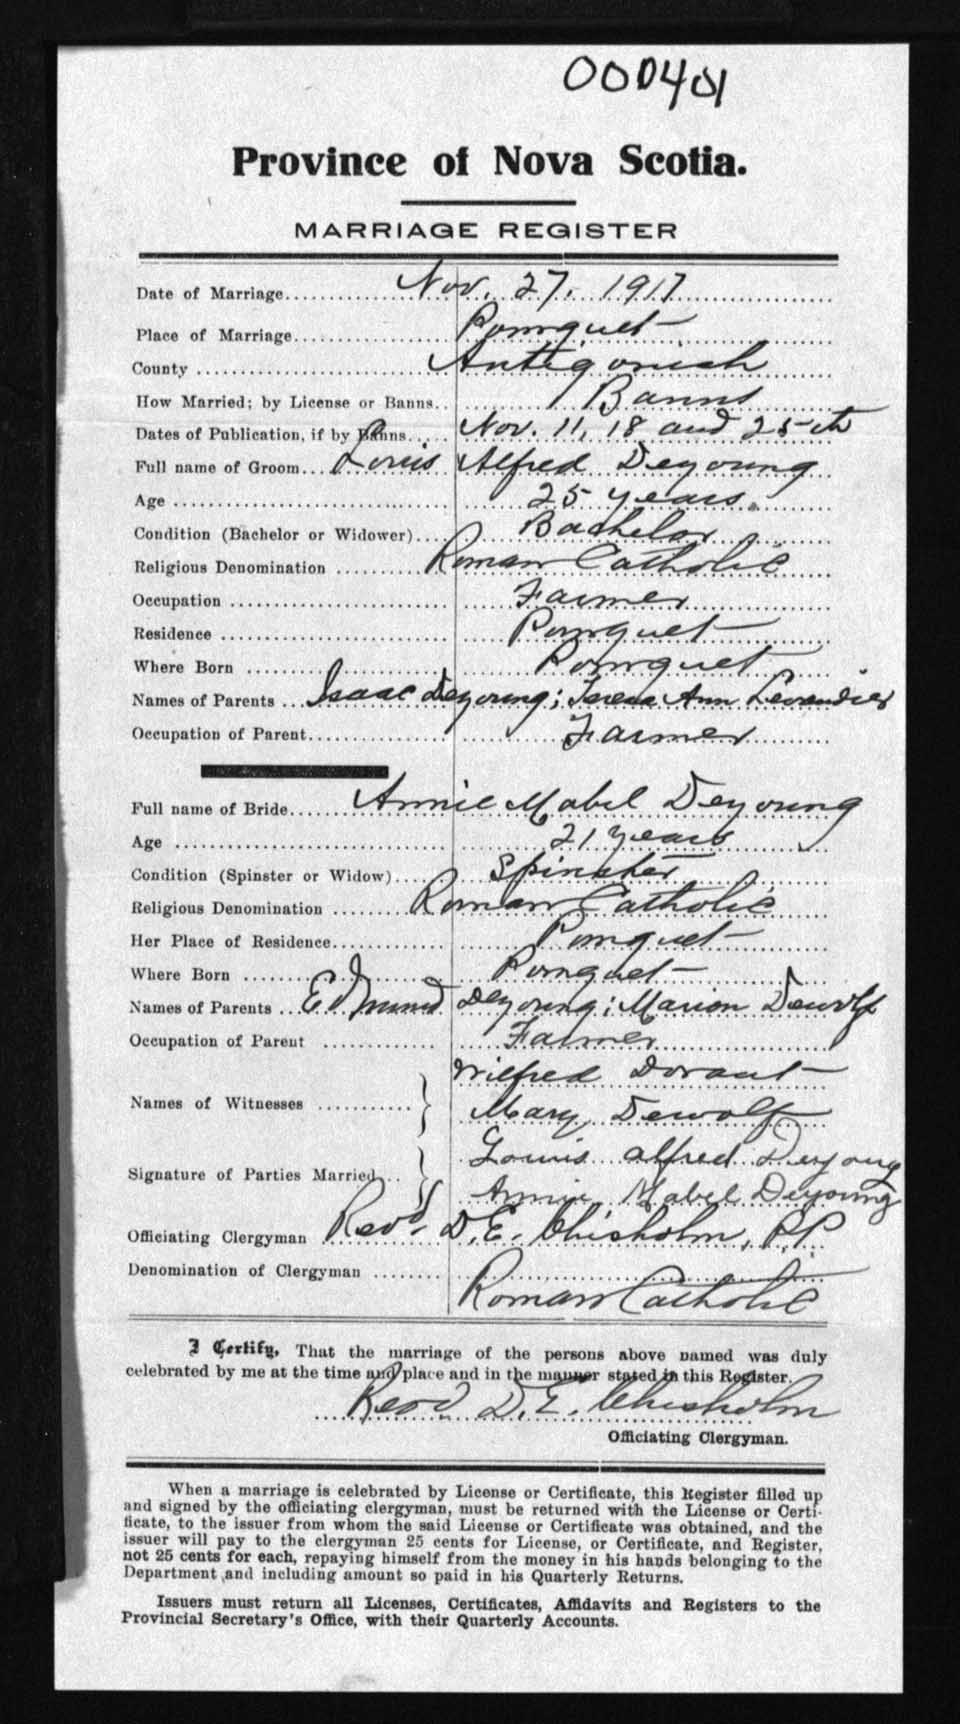 000401
Province of Nova Scotia.
MARRIAGE REGISTER
Date of Marriage Nov. 27, 1917
Place of Marriage Pomquet
County Antigonish
How Married; by License or Banns Banns
Dates of Publication, if by Banns Nov. 11, 18 and 25th
Full name of Groom Louis Alfred Deyoung
Age 25 years.
Condition (Bachelor or Widower) Bachelor
Religious Denomination Roman Catholic
Occupation Farmer
Residence Pomquet
Where Born Pomquet
Names of Parents Isaac Deyoung; Teresa Ann Levandier
Occupation of Parent Farmer
Full name of Bride Annie Mabel Deyoung
Age 21 years
Condition (Spinster or Widow) Spinster
Religious Denomination Roman Catholic
Her Place of Residence Pomquet
Where Born Pomquet
Names of Parents Edmund Deyoung; Marion Dewolf
Occupation of Parent Farmer
Wilfred Dorant
Names of Witnesses
Mary Dewolf
Louis alfred Deyoung
Signature of Parties Married
Annie Mabel Deyoung
Officiating Clergyman Revd. D. E. Chisholm, P.P.
Denomination of Clergyman Roman Catholic
I Certify, That the marriage of the persons above named was duly
celebrated by me at the time and place and in the manner stated in this Register.
Revd. D. E. Chisholm
Officiating Clergyman.
When a marriage is celebrated by License or Certificate, this Register filled up
and signed by the officiating clergyman, must be returned with the License or Certi-
ficate, to the issuer from whom the said License or Certificate was obtained, and the
issuer will pay to the clergyman 25 cents for License, or Certificate, and Register,
not 25 cents for each, repaying himself from the money in his hands belonging to the
Department and including amount so paid in his Quarterly Returns.
Issuers must return all Licenses, Certificates, Affidavits and Registers to the
Provincial Secretary's Office, with their Quarterly Accounts.